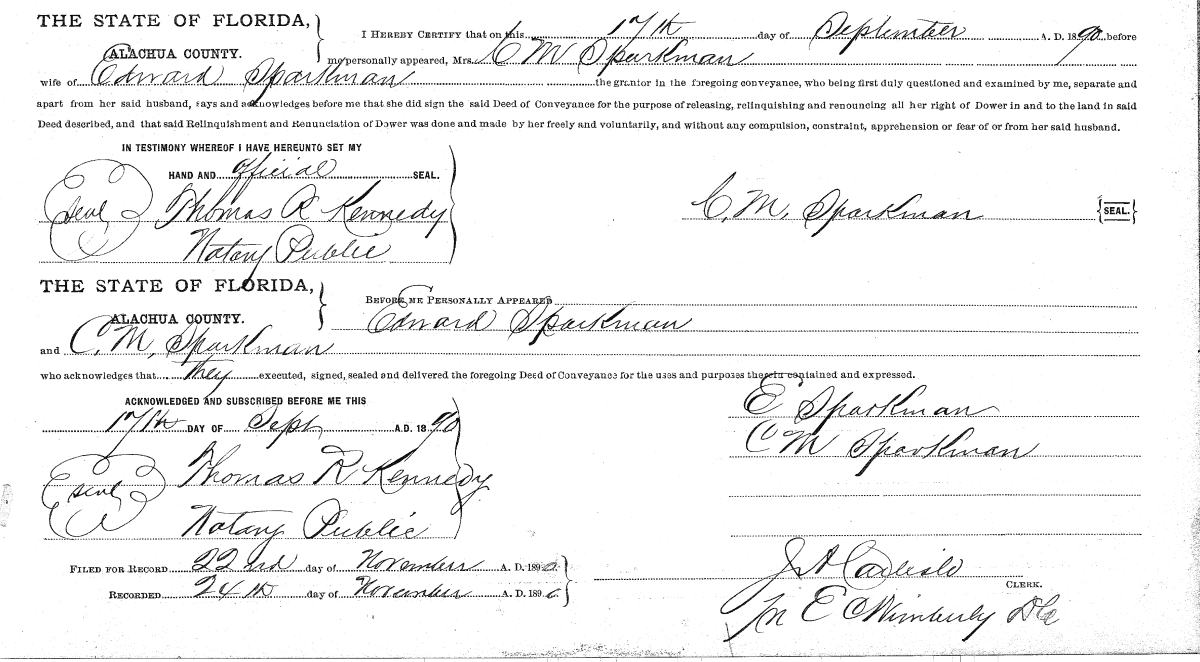 THE STATE OF FLORIDA, I HEREBY CERTIFY that on this 17th day of September A. D. 1890 before
ALACHUA COUNTY. me personally appeared, Mrs. C M Sparkman
wife of Edward Sparkman the grantor in the foregoing conveyance, who being first duly questioned and examined by me, separate and
apart from her said husband, says and acknowledges before me that she did sign the said Deed of Conveyance for the purpose of releasing, relinquishing and renouncing all her right of Dower in and to the land in said
Deed described, and that said Relinquishment and Renunciation of Dower was done and made by her freely and voluntarily, and without any compulsion, constraint, apprehension or fear of or from her said husband.
IN TESTIMONY WHEREOF I HAVE HEREUNTO SET MY
HAND AND official SEAL.
Seal Thomas R Kennedy
C. M. Sparkman {SEAL.}
Notary Public
THE STATE OF FLORIDA, BEFORE ME PERSONALLY APPEARED
ALACHUA COUNTY. Edward Sparkman
and C. M. Sparkman
who acknowledges that they executed, signed, sealed and delivered the foregoing Deed of Conveyance for the uses and purposes therein contained and expressed.
ACKNOWLEDGED AND SUBSCRIBED BEFORE ME THIS
17th DAY OF Sept A.D. 1890
E Sparkman
C M Sparkman
seal Thomas R Kennedy
Notary Public
FILED FOR RECORD 22nd day of November A. D. 1890
RECORDED 24th day of November A. D. 1890
J A Carlisle
CLERK.
M E C Wimberly